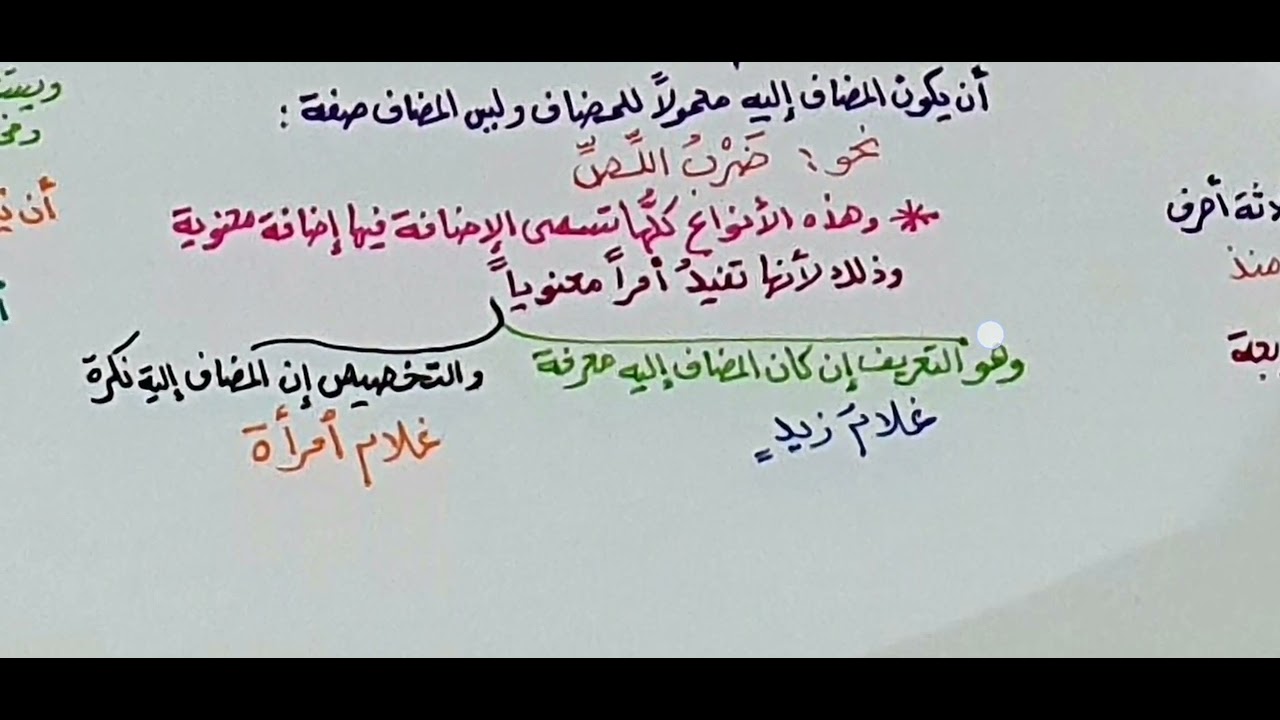 أن يكون المضاف إليه معمولاً للمضاف وليس المضاف صفة :
نحو : ضَرْبُ اللِّصِّ
* وهذه الأنواع كلُّها تسمى الإضافة فيها إضافة معنوية
وذلك لأنها تفيدُ أمراً معنوياً
وهو التعريف إن كان المضاف إليه معرفة
والتخصيص إن المضاف إلية نكرة
غلامَ زيدٍ
غلام أمرأة
أحرف
منذ
أن